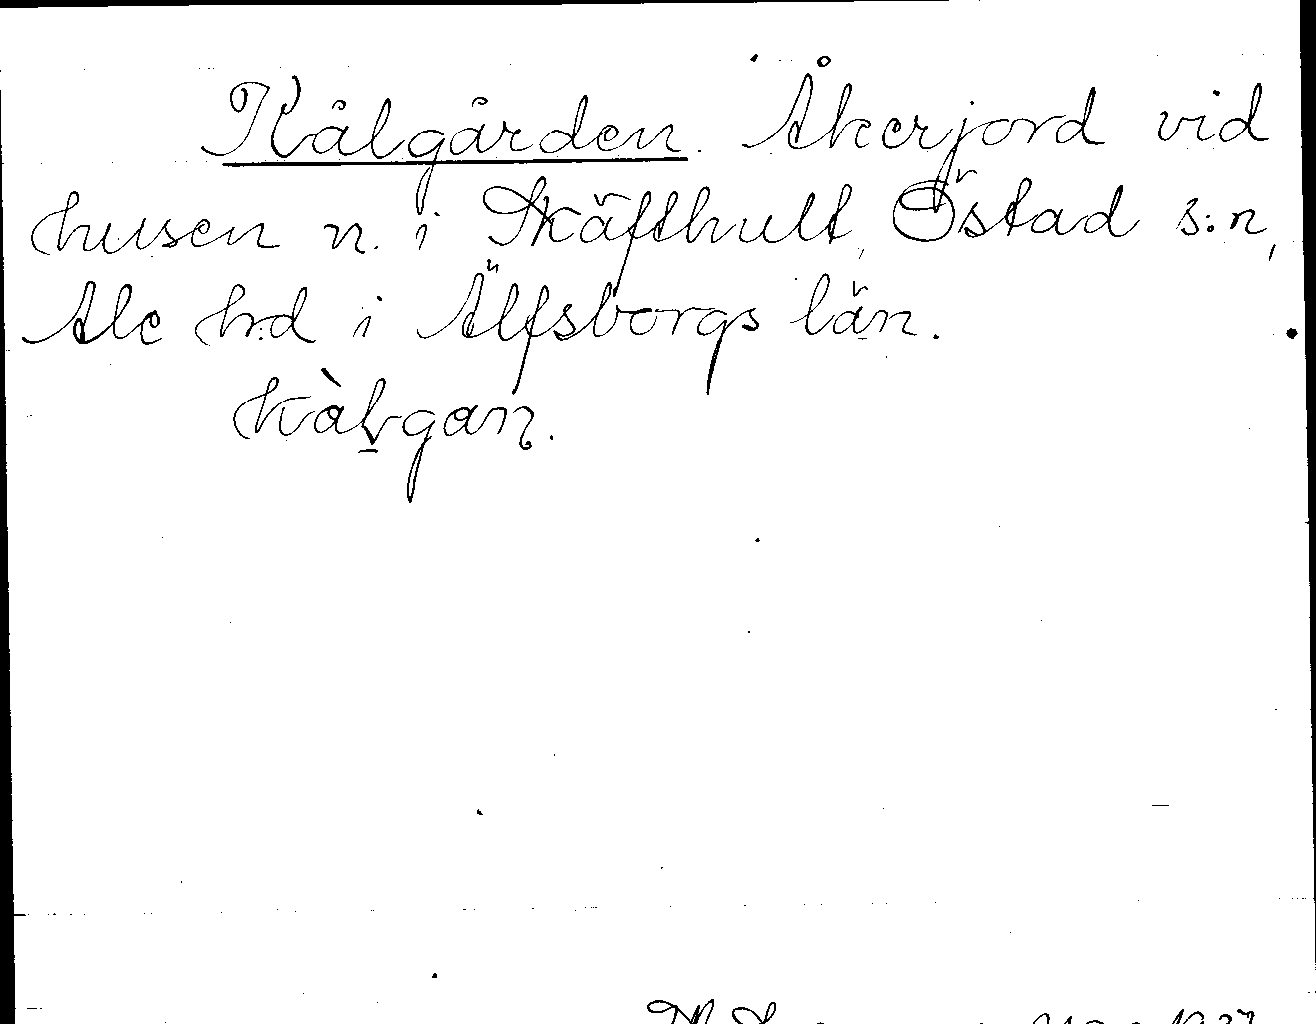 Kålgården. Åkerjord vid
husen n. i Skäfthult, Östad s:n,
Ale hd i Älfsborgs län.
kàlgan.
1937